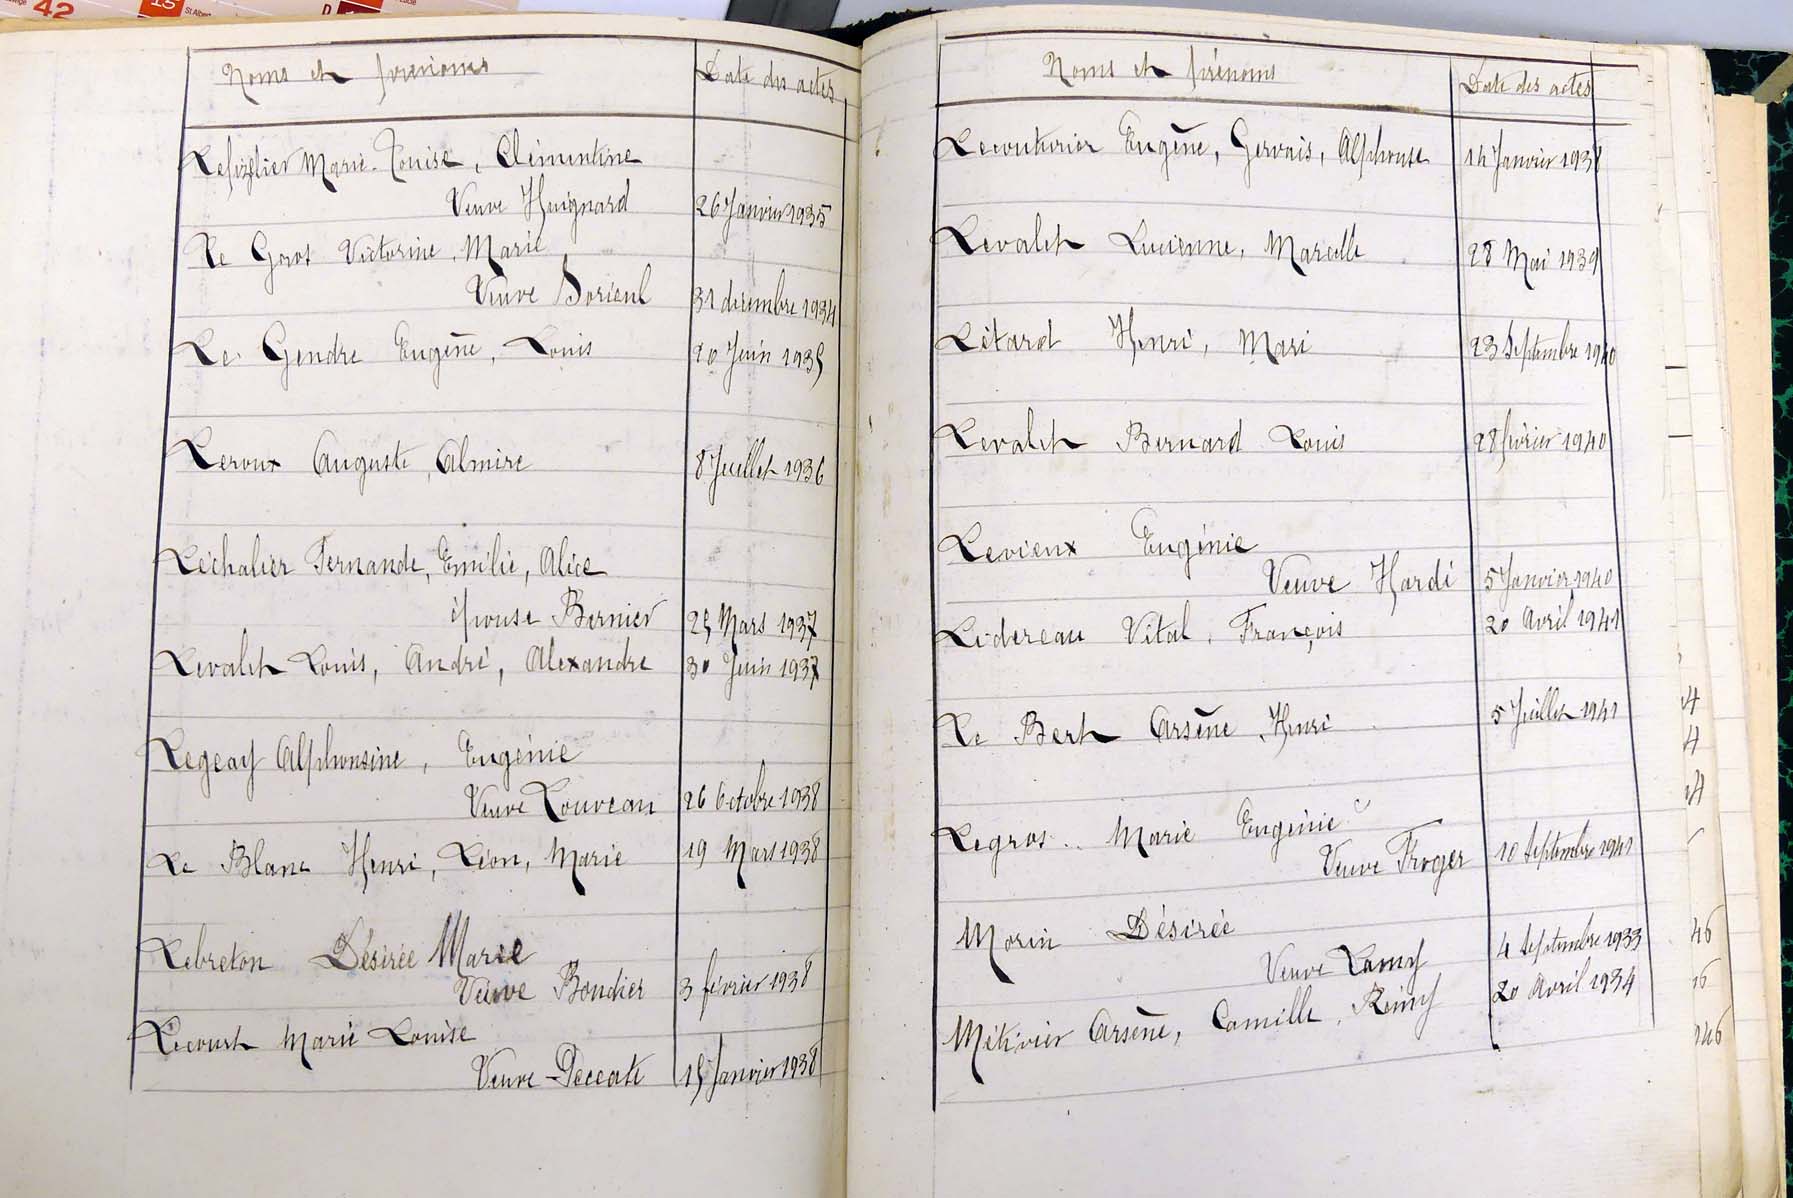 42
15
St Albert
D
Noms et prénoms Date des actes
Marie-Louise, Clémentine
Veuve Huignard 26 Janvier 1935
Le Gorot Victorine, Marie
Veuve Dorieul 31 décembre 1934
Le Gendre Eugène, Louis 20 Juin 1935
Leroux Auguste, Almire 8 Juillet 1936
Léchalier Fernande, Emilie, Alice
épouse Bernier 25 Mars 1937
Levalet Louis, André, Alexandre 30 Juin 1937
Legeay Alphonsine, Eugénie
Veuve Louveau 26 Octobre 1938
Le Blanc Henri, Léon, Marie 19 Mars 1938
Lebreton Désirée Marie
Veuve Bondier 3 février 1938
Lecourt Marie Louise
Veuve Deccate 15 Janvier 1938
Noms et prénoms Date des actes
Lecouturier Eugène, Gervais, Alphonse 14 Janvier 1938
Levalet Lucienne, Marcelle 28 Mai 1939
Létard Henri, Mari 23 Septembre 1940
Levalet Bernard Louis 28 février 1940
Levieux Eugénie
Veuve Hardi 5 Janvier 1940
Lidereau Vital, François 20 Avril 1941
Le Bert Arsène Henri 5 Juillet 1941
Legros Marie Eugénie
Veuve Froger 10 Septembre 1941
Morin Désirée
Veuve Lamy 4 Septembre 1933
Métivier Arsène, Camille, Rémy 20 Avril 1934
4
4
4
46
16
46